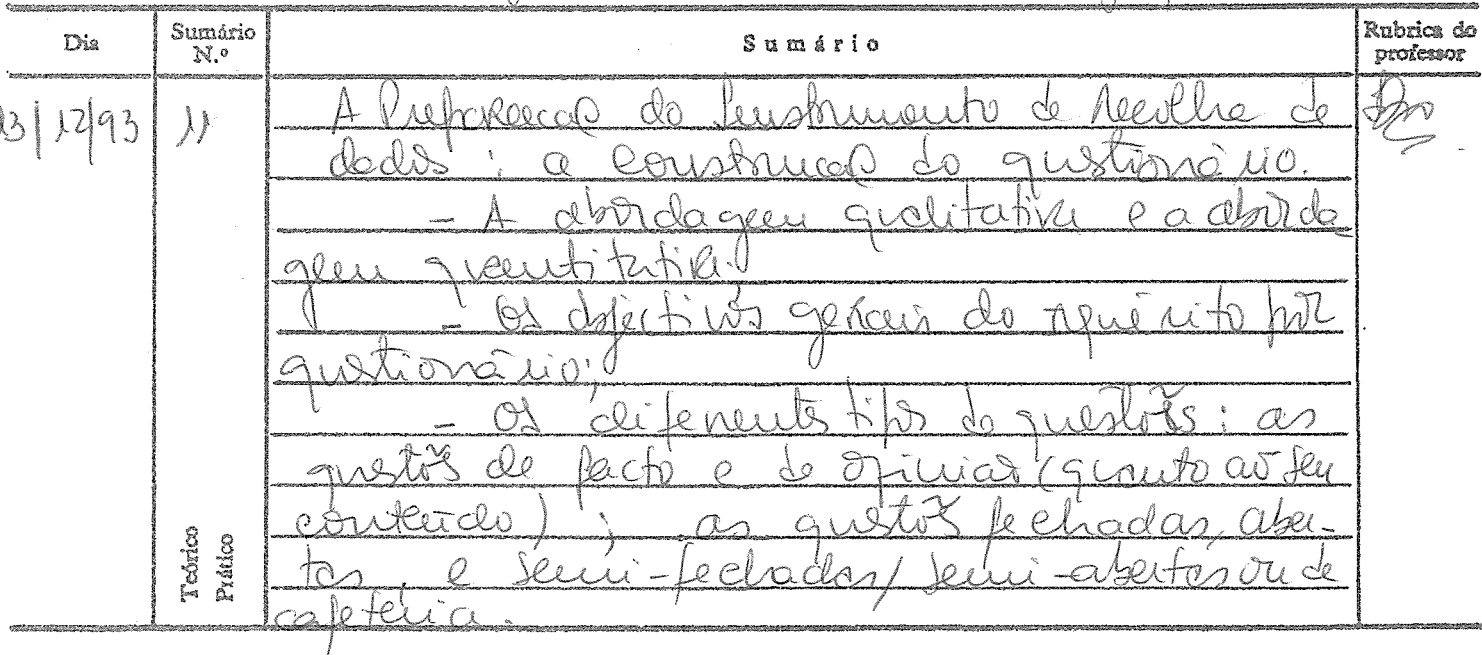 Dia Sumário N.º Sumário Rubrica do professor
13/12/93 11 A Preparação do Instrumento de recolha de
dados : a construção do questionário.
- A abordagem qualitativa e a aborda
gem quantitativa.
- Os objectivos gerais do inquérito por
questionário;
- Os diferentes tipos de questões : as
questões de facto e de opinião (quanto ao seu
conteúdo) ; as questões fechadas, aber-
tas, e semi-fechadas/semi-abertas ou de
cafeteria.
Teórico
Prático